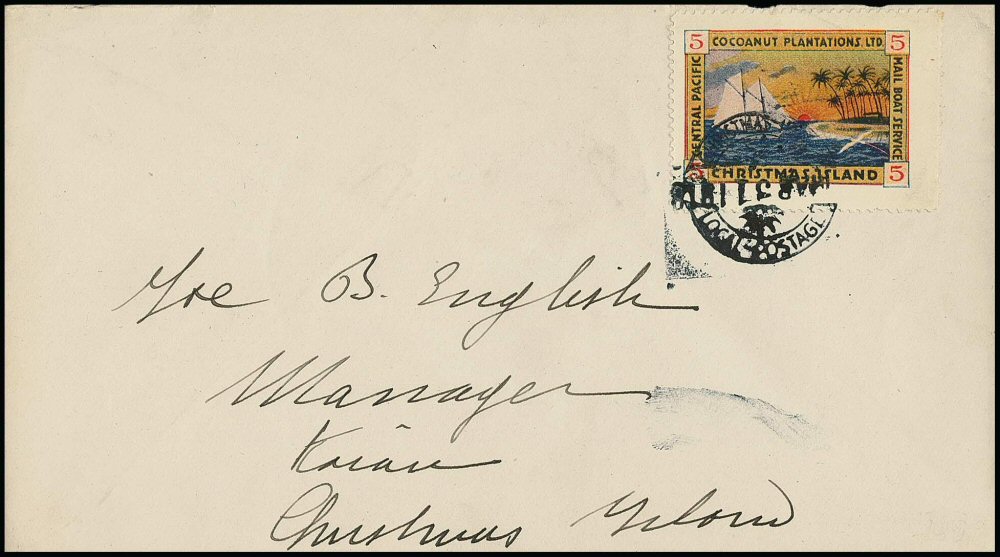 5 COCOANUT PLANTATIONS. LTD. 5
CENTRAL PACIFIC
MAIL BOAT SERVICE
5 CHRISTMAS ISLAND 5
MAR 31 191
LOCAL POSTAGE
Joe B. English
Manager
Christmas Island